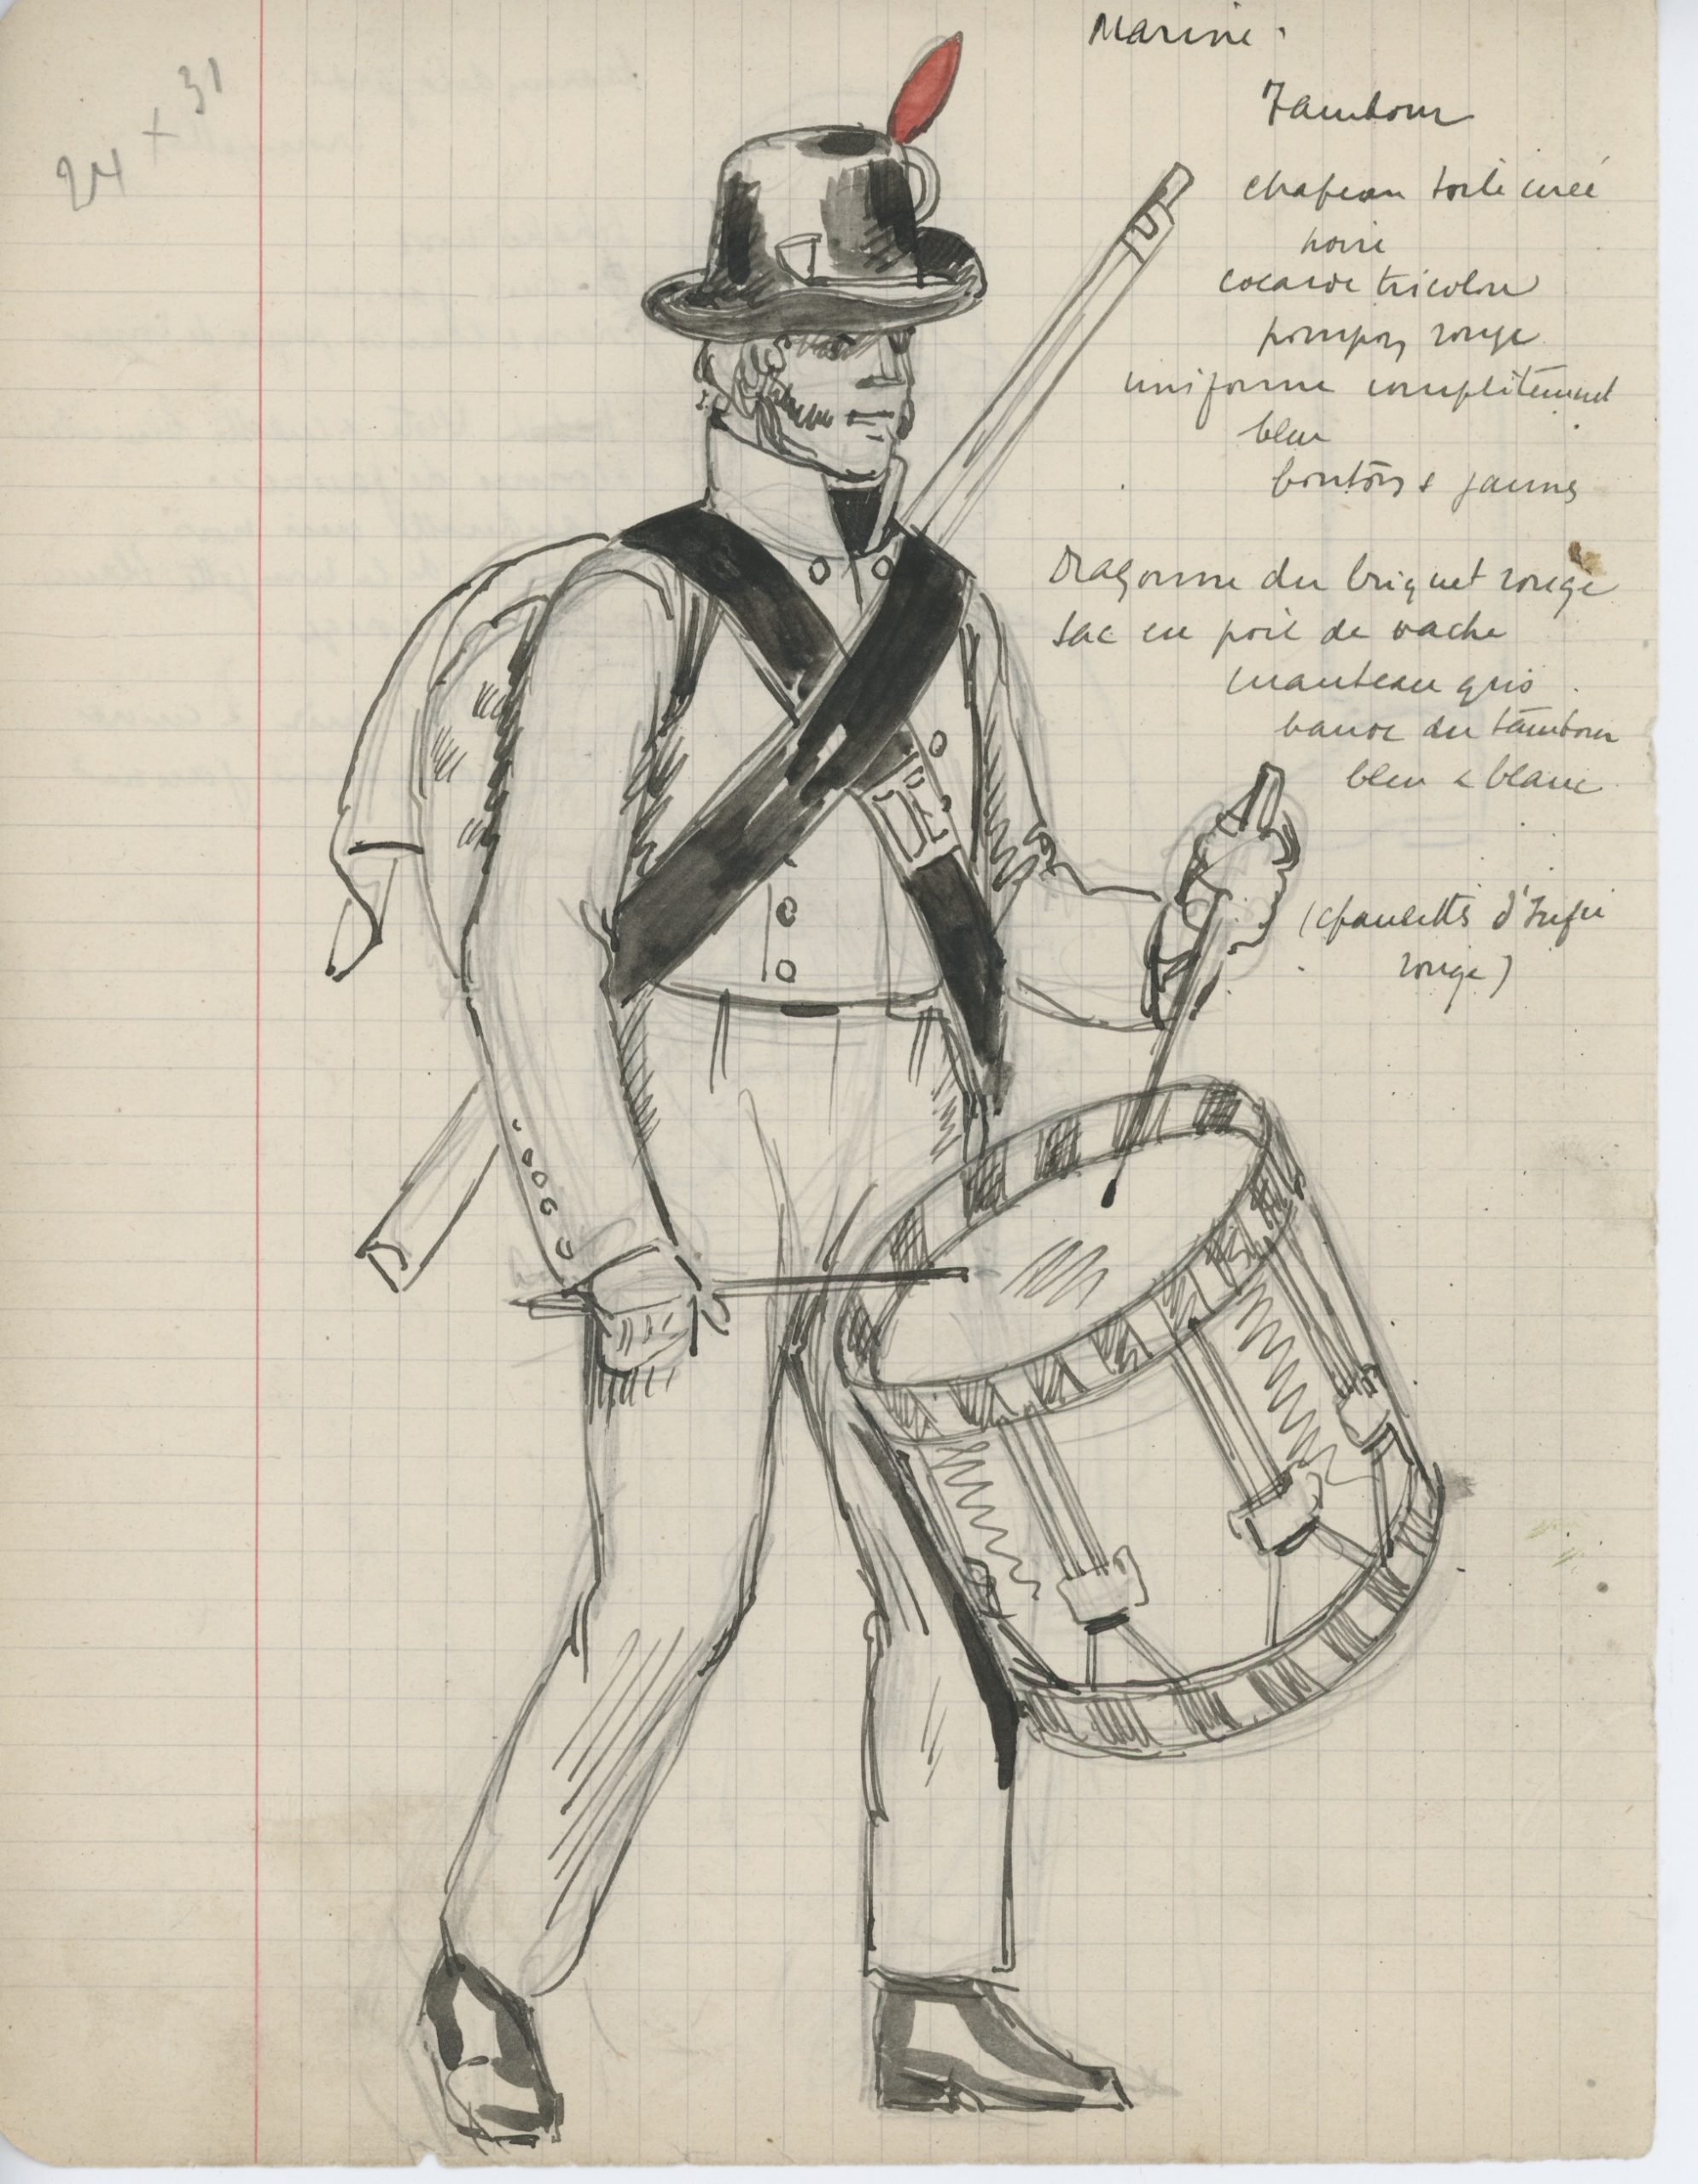 24 + 31
Marine.
Tambour
chapeau toile cirée
noire
cocarde tricolore
pompon rouge
uniforme complètement
bleu
boutons jaunes
Dragonne du briquet rouge
sac en poil de vache
manteau gris
bande du tambour
bleu & blanc
(épaulettes d'
rouge)